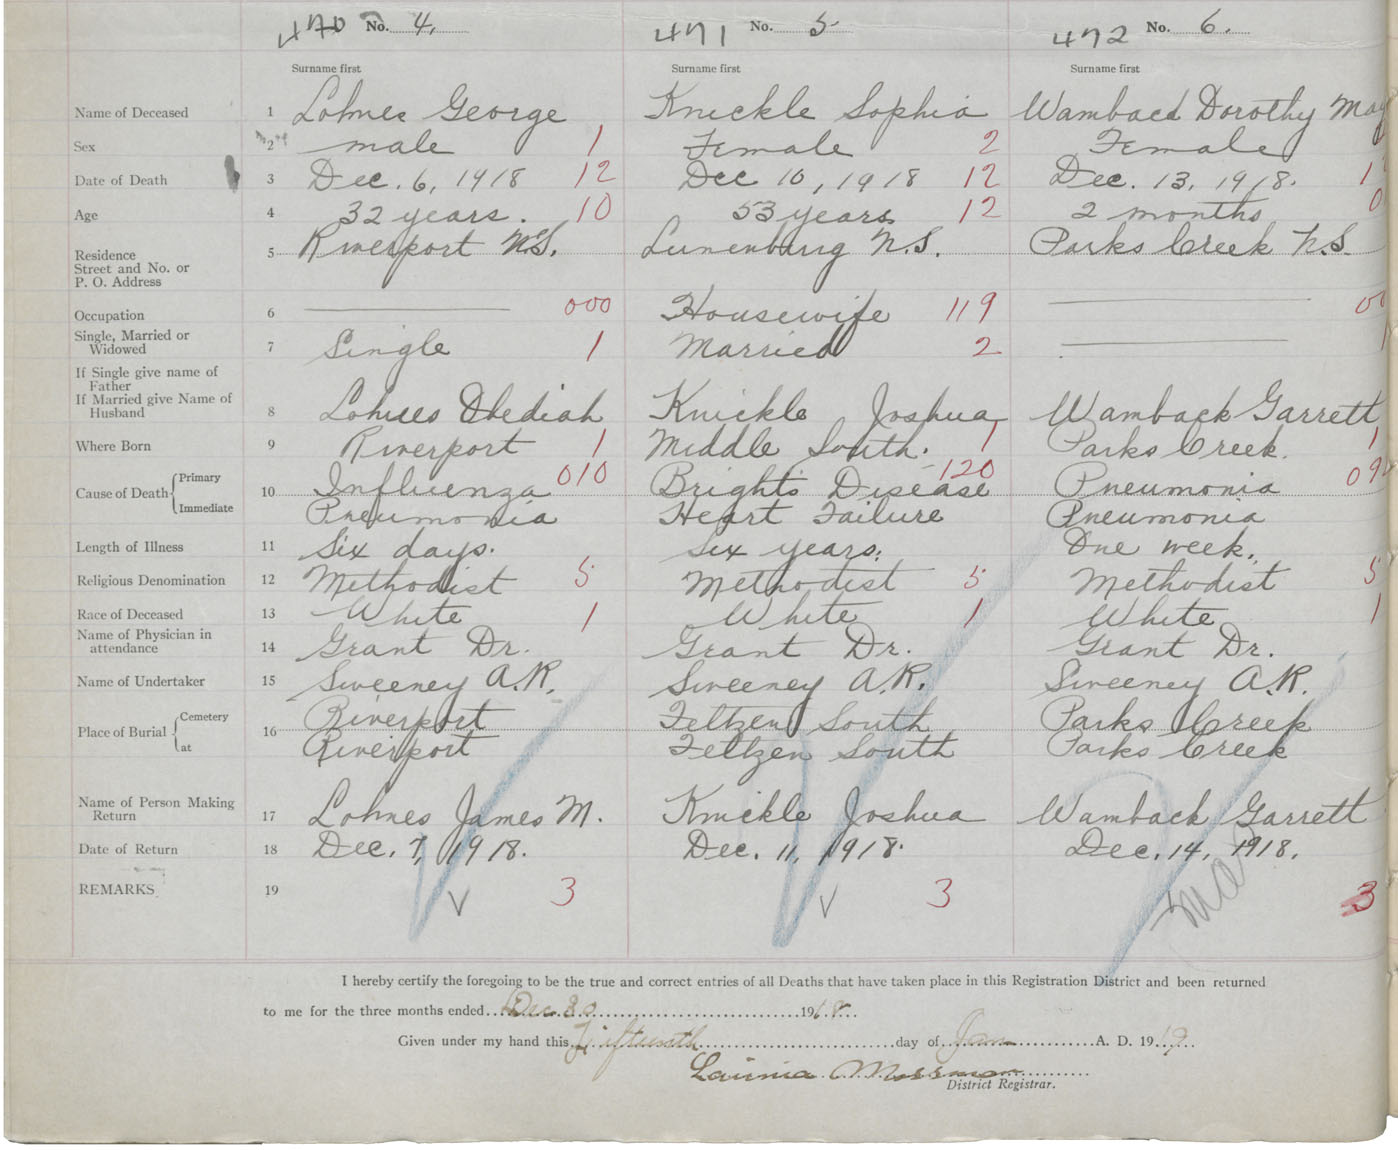 470 No. 4. 471 No. 5 472 No. 6.
Surname first Surname first Surname first
Name of Deceased 1 Lohnes George Knickle Sophia Wambach Dorothy May
Sex 2 male 1 Female 2 Female
Date of Death 3 Dec. 6, 1918 12 Dec 10, 1918 12 Dec. 13, 1918. 12
Age 4 32 years. 10 53 years 12 2 months 0
Residence
Street and No. or
P. O. Address 5 Riverport N.S. Lunenburg N.S. Parks Creek N.S.
Occupation 6 000 Housewife 119 00
Single, Married or
Widowed 7 Single 1 Married 2 1
If Single give name of
Father
If Married give Name of
Husband 8 Lohnes Obediah Knickle Joshua Wamback Garrett
Where Born 9 Riverport 1 Middle South. 1 Parks Creek. 1
Cause of Death Primary 10 Influenza 010 Bright's Disease 120 Pneumonia 09
Immediate Pneumonia Heart Failure Pneumonia
Length of Illness 11 Six days. Six years. One week.
Religious Denomination 12 Methodist 5 Methodist 5 Methodist 5
Race of Deceased 13 White 1 White 1 White 1
Name of Physician in
attendance 14 Grant Dr. Grant Dr. Grant Dr.
Name of Undertaker 15 Sweeney A.R. Sweeney A.R. Sweeney A.R.
Place of Burial Cemetery 16 Riverport Feltzen South Parks Creek
at Riverport Feltzen South Parks Creek
Name of Person Making
Return 17 Lohnes James M. Knickle Joshua Wamback Garrett
Date of Return 18 Dec. 7, 1918. Dec. 11, 1918. Dec. 14, 1918.
REMARKS 19 3 3 3
I hereby certify the foregoing to be the true and correct entries of all Deaths that have taken place in this Registration District and been returned
to me for the three months ended Dec 30 1918
Given under my hand this Fifteenth day of Jan A. D. 1919
District Registrar.